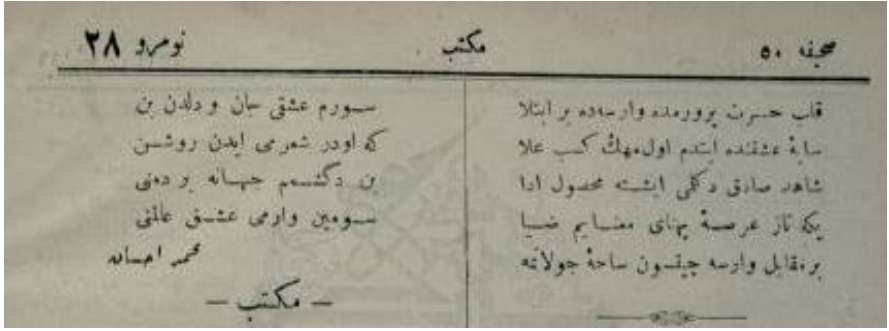 صحیفه ٥٠
مكتب
نومرو ٢٨
قلب حسرت پرورمده وارسه‌ده بر ابتلا
سایهٔ عشقنده ایتدم اول مهك كسب علا
شاهد صادق دكلمی ایشته محصول ادا
یكه تاز عرصهٔ پهنای معنایم ضیا
بر مقابل وارسه چیقسون ساحهٔ جولانمه
سورم عشقی جان و دلدن بن
كه اودر شعرمی ایدن روشن
بن دكشمم جهانه بر دمنی
سومین وارمی عشق عالمنی
محمد احسان
— مكتب —